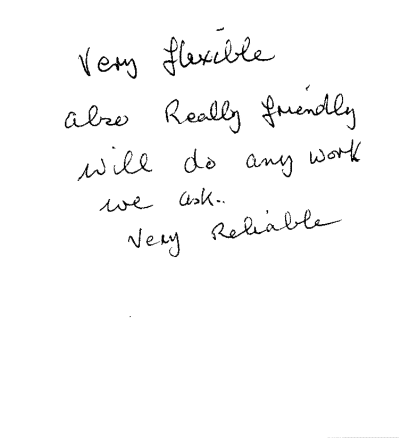 Very flexible
also Really friendly
will do any work
we ask..
Very Reliable